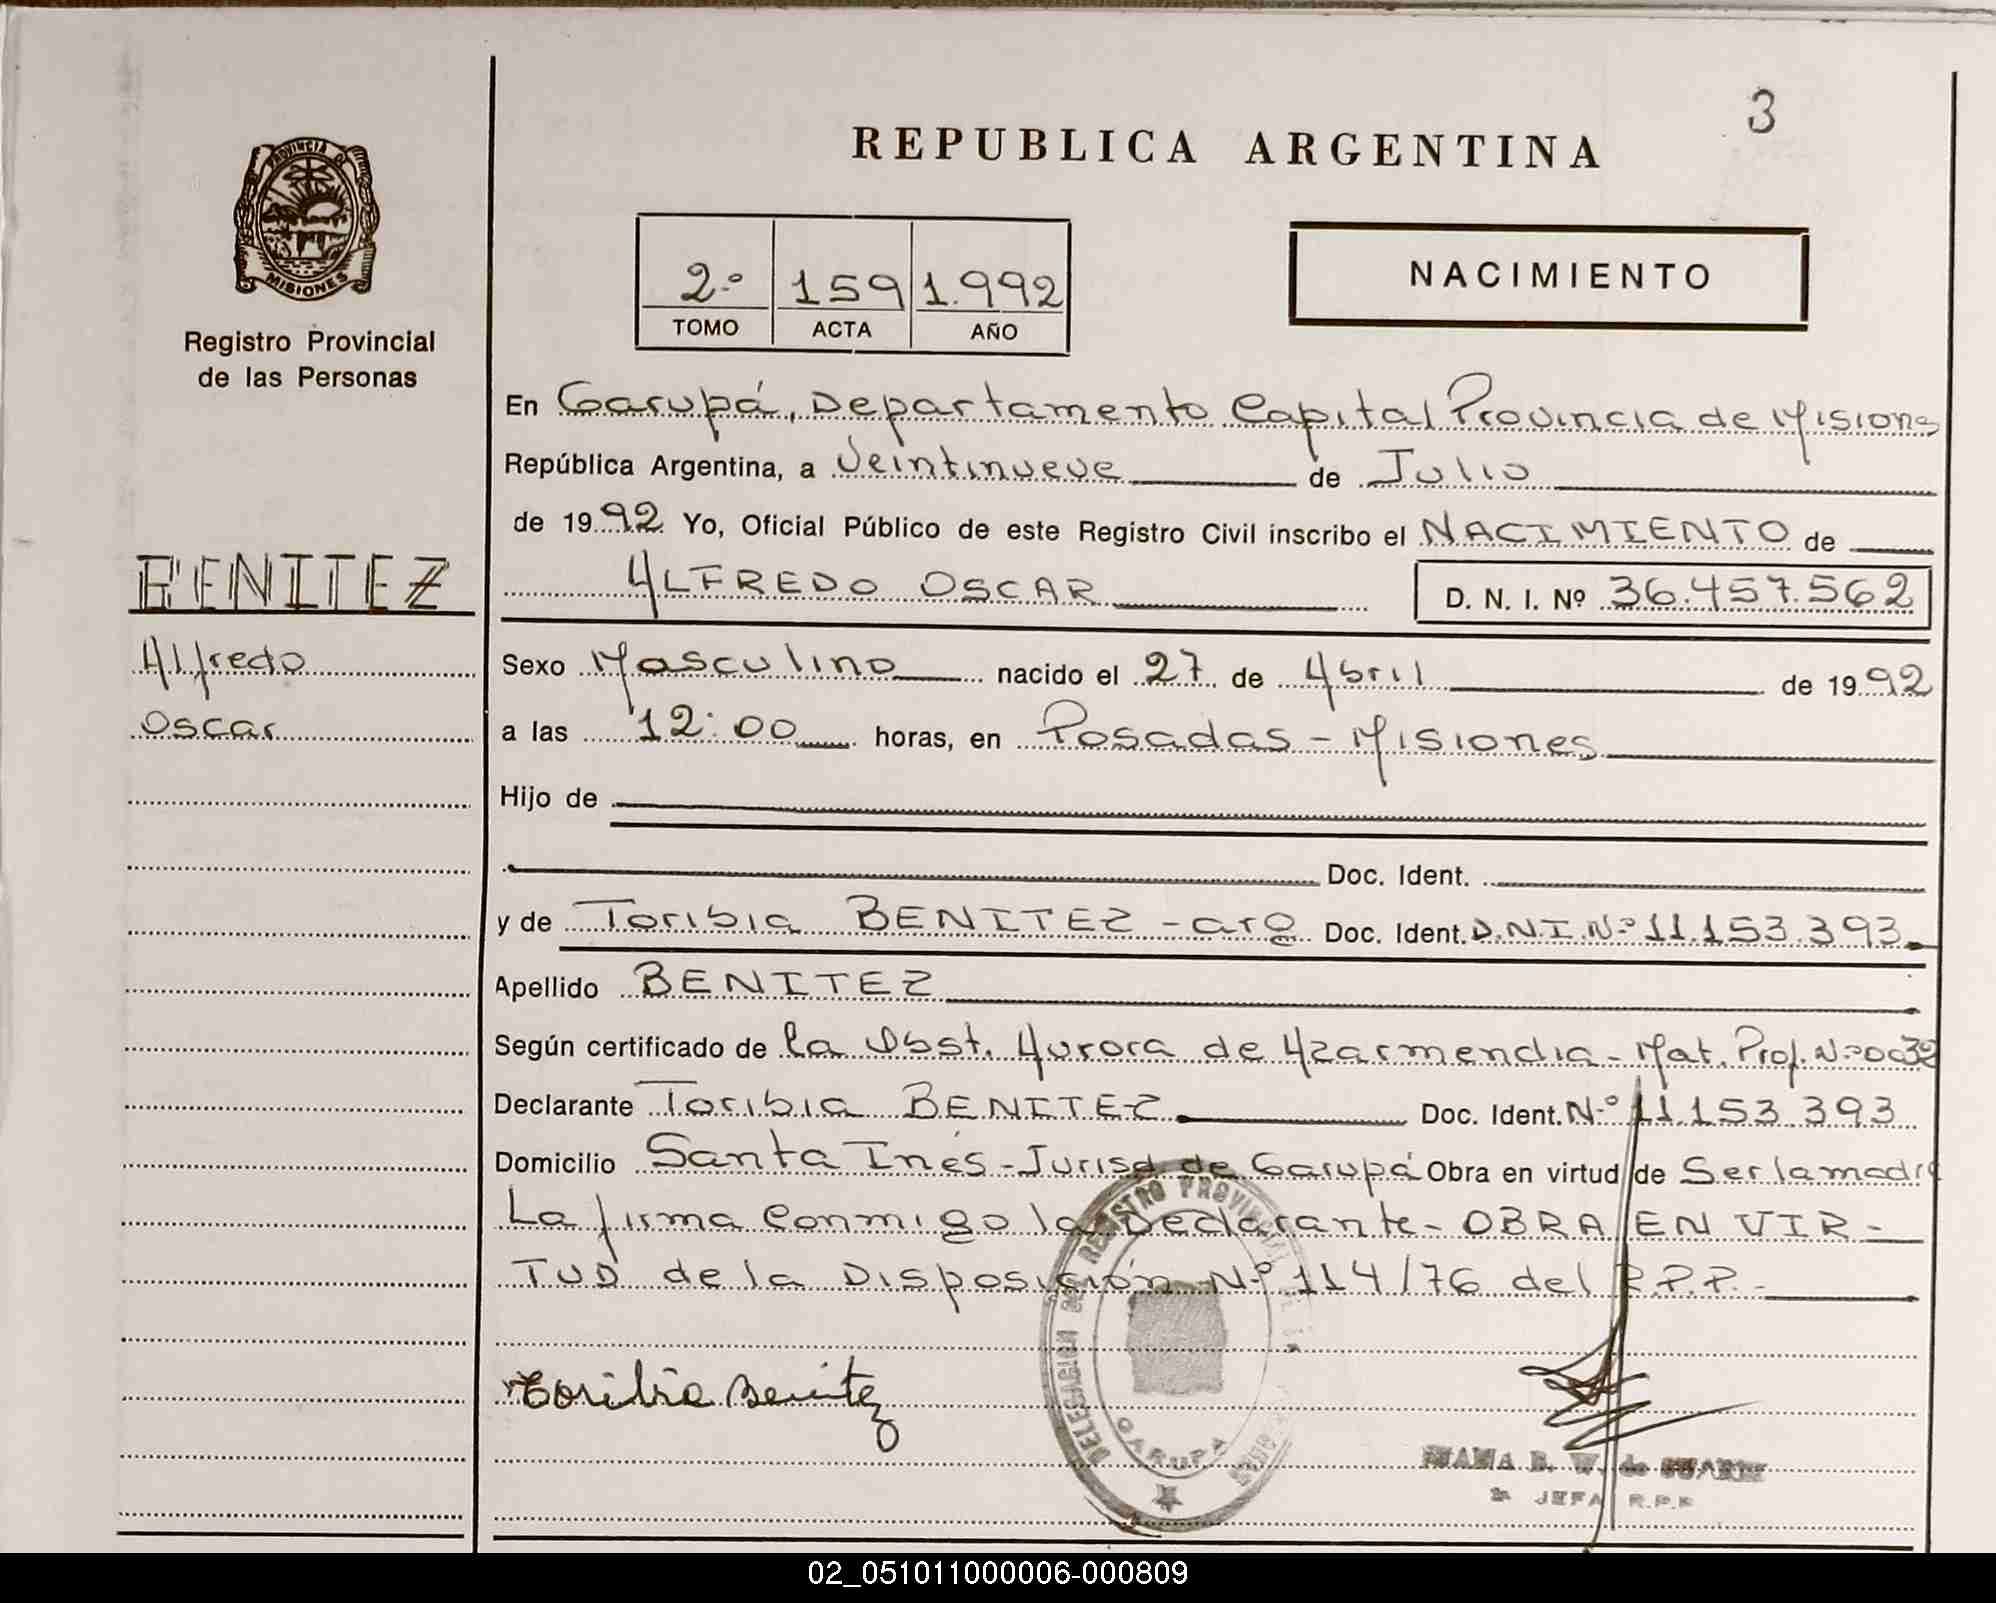 3
REPUBLICA ARGENTINA
PROVINCIA DE
MISIONES
Registro Provincial
de las Personas
2º 159 1.992
TOMO ACTA AÑO
NACIMIENTO
En Garupá, Departamento Capital Provincia de Misiones
República Argentina, a Veintinueve de Julio
de 1992 Yo, Oficial Público de este Registro Civil inscribo el NACIMIENTO de
ALFREDO OSCAR D. N. I. Nº 36.457.562
BENITEZ
Alfredo
Oscar
Sexo Masculino nacido el 27 de Abril de 1992
a las 12:00 horas, en Posadas - Misiones
Hijo de
Doc. Ident.
y de Toribia BENITEZ - arg Doc. Ident. D.N.I.Nº 11.153.393
Apellido BENITEZ
Según certificado de la Obst. Aurora de Azarmendia - Mat. Prof. Nº 0032
Declarante Toribia BENITEZ Doc. Ident. Nº 11.153.393
Domicilio Santa Inés - Jurisd de Garupá Obra en virtud de Ser la madre
La firma Conmigo la Declarante - OBRA EN VIR-
TUD de la Disposición Nº 114/76 del R.P.P.-
Toribia Benitez
DELEGACION DEL REGISTRO PROVINCIAL DE
GARUPA
B. W. de
JEFA R.P.P
02_051011000006-000809